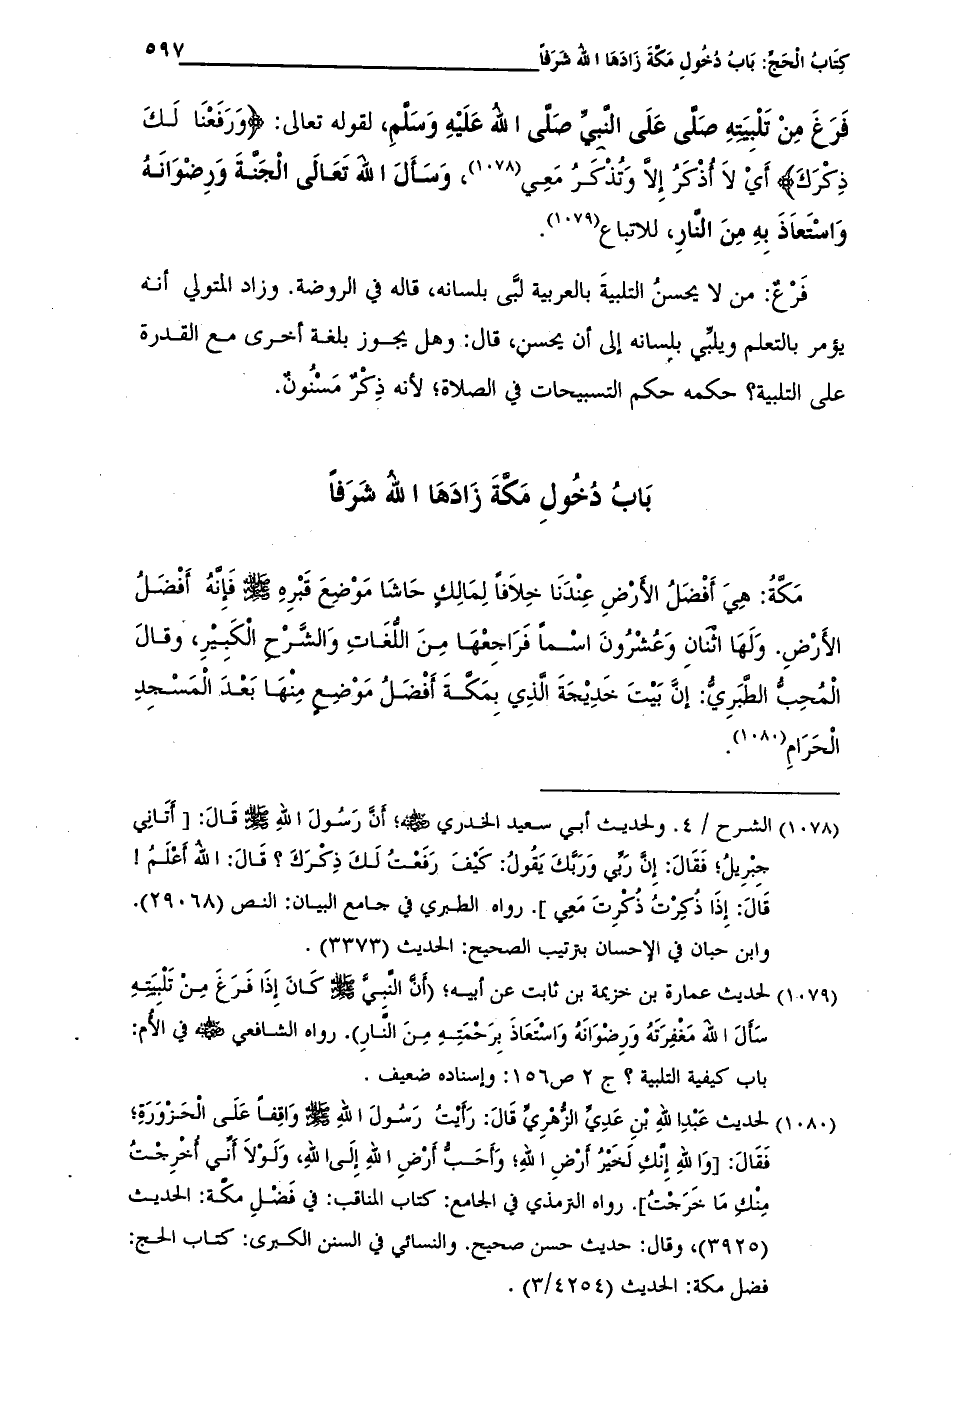 كِتَابُ الْحَجِّ: بَابُ دُخُولِ مَكَّةَ زَادَهَا اللهُ شَرَفاً ٥٩٧
فَرَغَ مِنْ تَلْبِيَتِهِ صَلَّى عَلَى النَّبِيِّ صَلَّى اللهُ عَلَيْهِ وَسَلَّمِ، لقوله تعالى: ﴿وَرَفَعْنَا لَكَ
ذِكْرَكَ﴾ أَيْ لاَ أُذْكَرُ إِلاَّ وَتُذْكَرُ مَعِي(١٠٧٨)، وَسَأَلَ اللهَ تَعَالَى الْجَنَّةَ وَرِضْوَانَهُ
وَاسْتَعَاذَ بِهِ مِنَ النَّارِ، للاتباع(١٠٧٩).
فَرْعٌ: من لا يحسنُ التلبيةَ بالعربية لبَّى بلسانه، قاله في الروضة. وزاد المتولي أنه
يؤمر بالتعلم ويلبِّي بلسانه إلى أن يحسن، قال: وهل يجوز بلغة أخرى مع القدرة
على التلبية؟ حكمه حكم التسبيحات في الصلاة؛ لأنه ذِكْرٌ مَسْنُونٌ.
بَابُ دُخُولِ مَكَّةَ زَادَهَا اللهُ شَرَفاً
مَكَّةُ: هِيَ أَفْضَلُ الأَرْضِ عِنْدَنَا خِلاَفاً لِمَالِكٍ حَاشَا مَوْضِعَ قَبْرِهِ ﷺ فَإِنَّهُ أَفْضَلُ
الأَرْضِ. وَلَهَا اثْنَانِ وَعُشْرُونَ اسْماً فَرَاجِعْهَا مِنَ اللُّغَاتِ وَالشَّرْحِ الْكَبِيْرِ، وقَالَ
الْمُحِبُّ الطَّبَرِيُّ: إِنَّ بَيْتَ خَدِيْجَةَ الَّذِي بِمَكَّةَ أَفْضَلُ مَوْضِعٍ مِنْهَا بَعْدَ الْمَسْجِدِ
الْحَرَامِ(١٠٨٠).
(١٠٧٨) الشرح / ٤. ولحديث أبي سعيد الخدري ﷺ؛ أَنَّ رَسُولَ اللهِ ﷺ قَالَ: [ أَتَانِي
جِبْرِيلُ؛ فَقَالَ: إِنَّ رَبِّي وَرَبَّكَ يَقُولُ: كَيْفَ رَفَعْتُ لَكَ ذِكْرَكَ؟ قَالَ: اللهُ أَعْلَمُ !
قَالَ: إِذَا ذُكِرْتُ ذُكِرْتَ مَعِي ]. رواه الطبري في جامع البيان: النص (٢٩٠٦٨).
وابن حبان في الإحسان بترتيب الصحيح: الحديث (٣٣٧٣) .
(١٠٧٩) لحديث عمارة بن خزيمة بن ثابت عن أبيه؛ (أَنَّ النَّبِيَّ ﷺ كَانَ إِذَا فَرَغَ مِنْ تَلْبِيَتِهِ
سَأَلَ اللهَ مَغْفِرَتَهُ وَرِضْوَانَهُ وَاسْتَعَاذَ بِرَحْمَتِهِ مِنَ النَّارِ). رواه الشافعي ﷺ في الأُم:
باب كيفية التلبية ؟ ج ٢ ص١٥٦: وإسناده ضعيف .
(١٠٨٠) لحديث عَبْدِاللهِ بْنِ عَدِيِّ الزُّهْرِيِّ قَالَ: رَأَيْتُ رَسُولَ اللهِ ﷺ وَاقِفاً عَلَى الْحَزْوَرَةِ؛
فَقَالَ: [وَاللهِ إِنَّكِ لَخَيْرُ أَرْضِ اللهِ؛ وَأَحَبُّ أَرْضِ اللهِ إِلَى اللهِ، وَلَوْلاَ أَنِّي أُخْرِجْتُ
مِنْكِ مَا خَرَجْتُ]. رواه الترمذي في الجامع: كتاب المناقب: في فَضْلِ مكَّة: الحديث
(٣٩٢٥)، وقال: حديث حسن صحيح. والنسائي في السنن الكبرى: كتاب الحج:
فضل مكة: الحديث (٣/٤٢٥٤) .